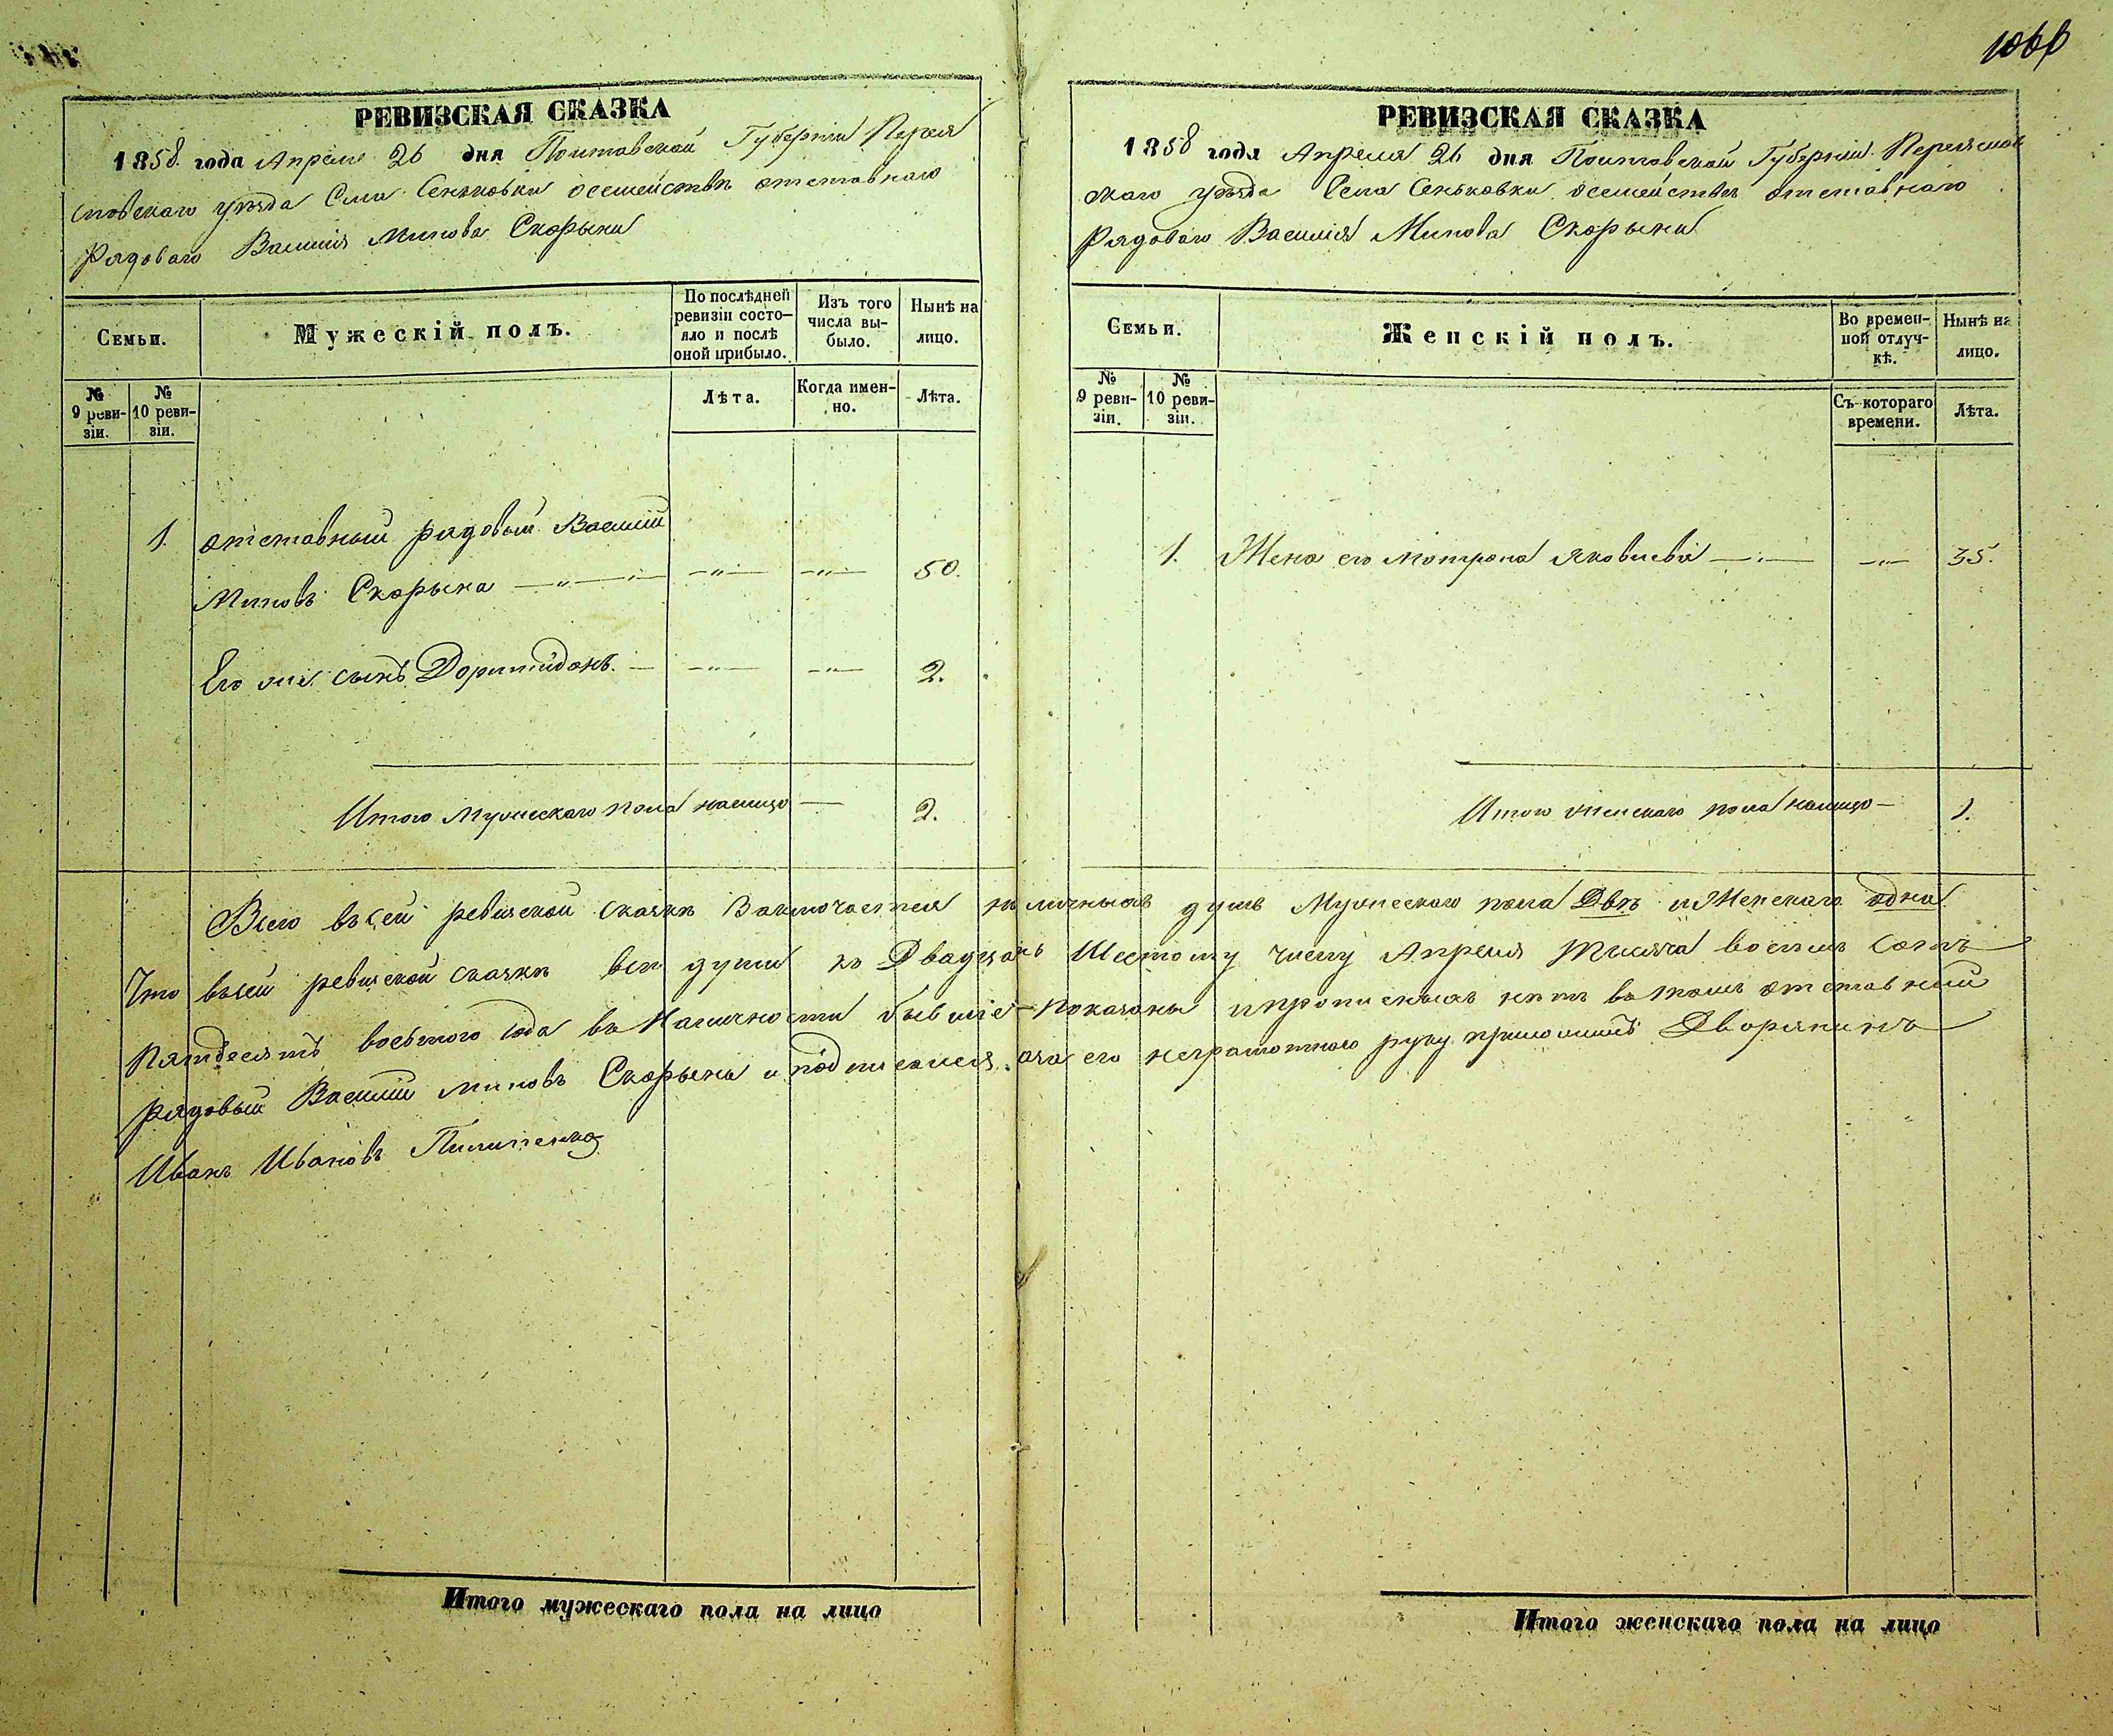 1066
РЕВИЗСКАЯ СКАЗКА
1858 года Апреля 26 дня Полтавской Губернiи Перея
славскаго уѣзда Села Сеньковки осемействѣ отставнаго
Рядоваго Василiя Минова Скорыны
Семьи.
Мужескiй полъ.
По послѣдней ревизiи состояло и послѣ оной прибыло.
Изъ того числа выбыло.
Нынѣ на лицо.
№ 9 ревизiи.
№ 10 ревизiи.
Лѣта.
Когда именно.
Лѣта.
1. отставный рядовый Василiй
Миновъ Скорына — „ — — „ — — „ — 50.
Его сынъ Дормидонъ. — — „ — — „ — 2.
Итого Мужескаго пола налицо — 2.
РЕВИЗСКАЯ СКАЗКА
1858 года Апреля 26 дня Полтавской Губернiи Переяслав
скаго уѣзда Села Сеньковки осемействѣ отставнаго
Рядоваго Василiя Минова Скорыны
Семьи.
Женскiй полъ.
Во временной отлучкѣ.
Нынѣ на лицо.
№ 9 ревизiи.
№ 10 ревизiи.
Съ котораго времени.
Лѣта.
1. Жена его Мотрона Яковлева — „ — — „ — 35.
Итого женскаго пола налицо — 1.
Всего въ сей ревизской сказкѣ Заключается наличныхъ душъ Мужескаго пола Двѣ и Женскаго одна
Что въ сей ревизской сказкѣ всѣ души къ Двадцать Шестому числу Апреля Тысяча восемь сотъ
Пятдесятъ восьмого года въ Наличности бывшiе показаны и прописныхъ нѣтъ въ томъ отставный
рядовый Василiй Миновъ Скорына и подписался. аза его неграмотного руку приложилъ Дворянинъ
Иванъ Ивановъ Пилипенко
Итого мужескаго пола на лицо
Итого женскаго пола на лицо